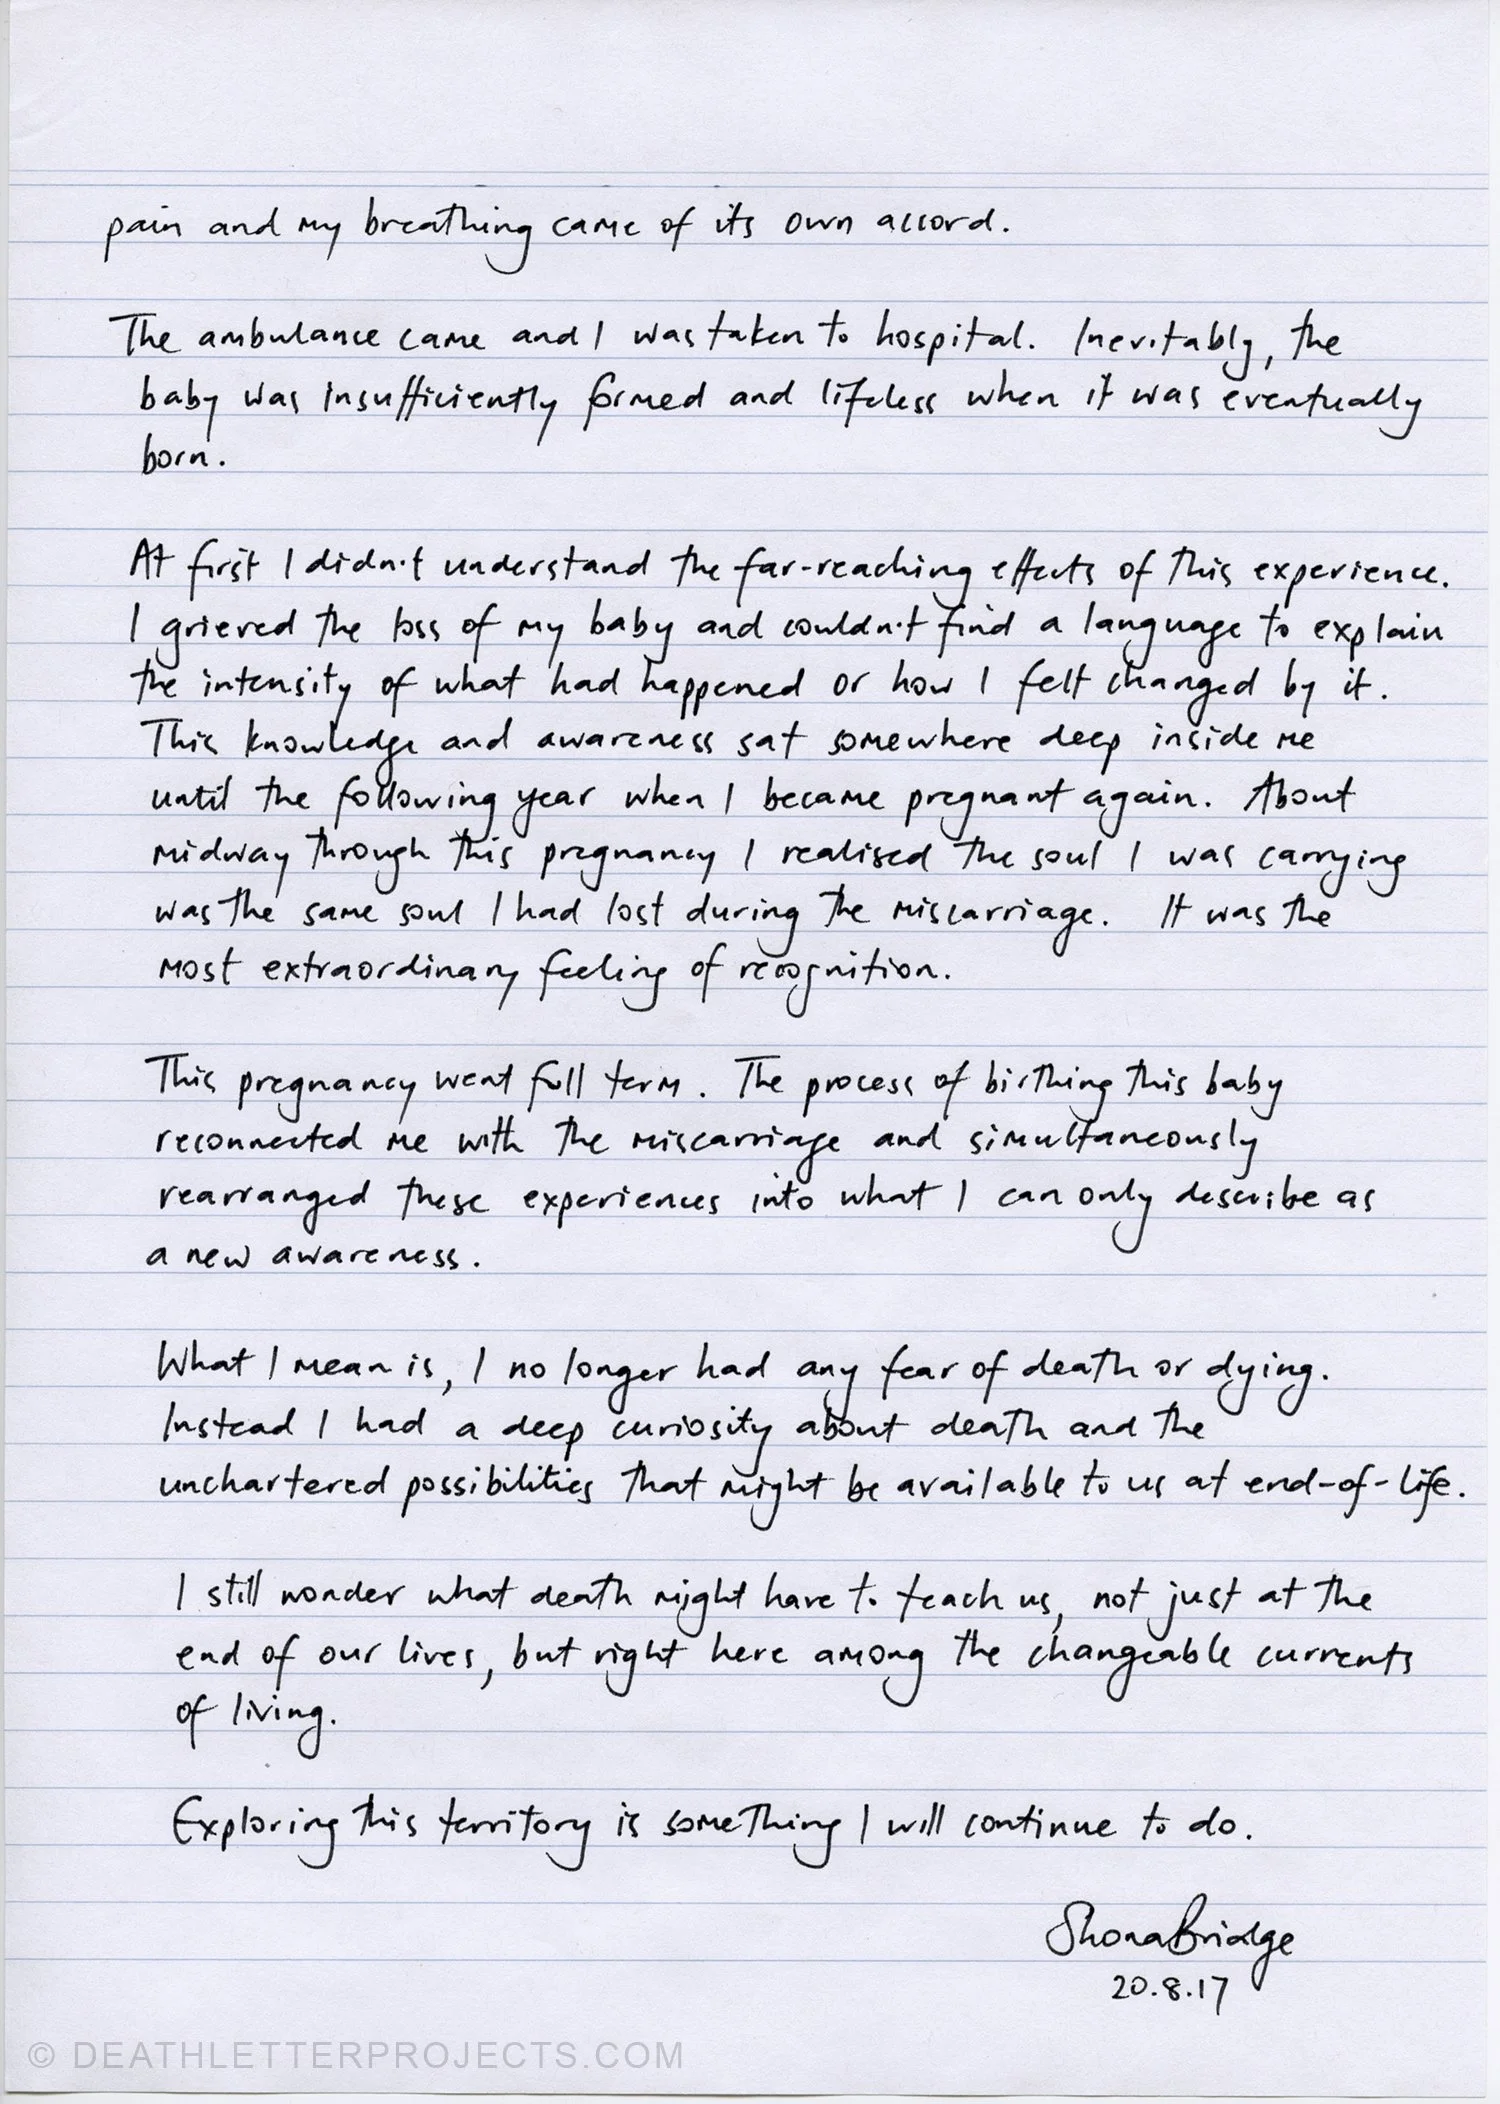 pain and my breathing came of its own accord.
The ambulance came and I was taken to hospital. Inevitably, the
baby was insufficiently formed and lifeless when it was eventually
born.
At first I didn't understand the far-reaching effects of this experience.
I grieved the loss of my baby and couldn't find a language to explain
the intensity of what had happened or how I felt changed by it.
This knowledge and awareness sat somewhere deep inside me
until the following year when I became pregnant again. About
midway through this pregnancy I realised the soul I was carrying
was the same soul I had lost during the miscarriage. It was the
most extraordinary feeling of recognition.
This pregnancy went full term. The process of birthing this baby
reconnected me with the miscarriage and simultaneously
rearranged these experiences into what I can only describe as
a new awareness.
What I mean is, I no longer had any fear of death or dying.
Instead I had a deep curiosity about death and the
unchartered possibilities that might be available to us at end-of-life.
I still wonder what death might have to teach us, not just at the
end of our lives, but right here among the changeable currents
of living.
Exploring this territory is something I will continue to do.
Shona Bridge
20.8.17
© DEATHLETTERPROJECTS.COM